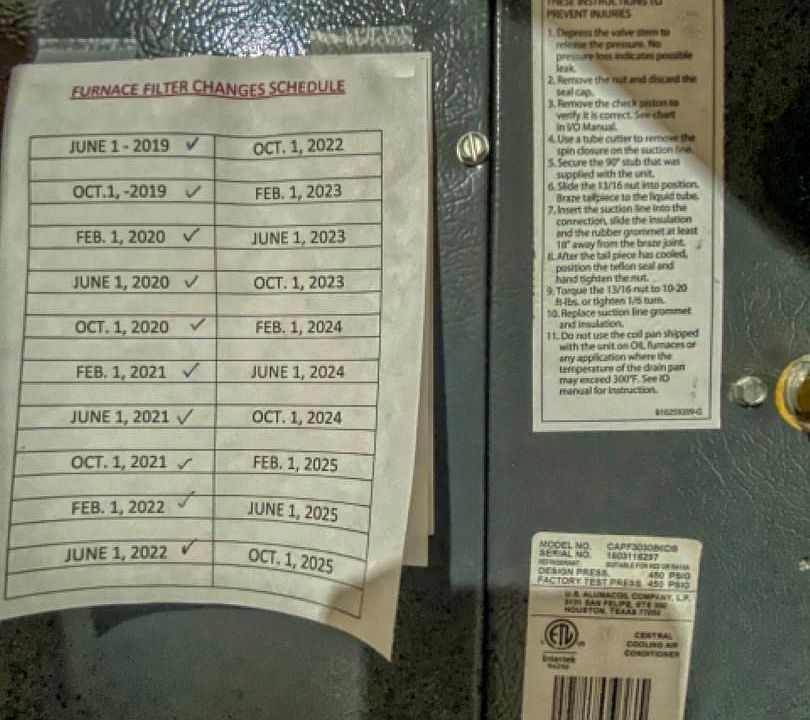 FURNACE FILTER CHANGES SCHEDULE
JUNE 1 - 2019 ✓
OCT.1, -2019 ✓
FEB. 1, 2020 ✓
JUNE 1, 2020 ✓
OCT. 1, 2020 ✓
FEB. 1, 2021 ✓
JUNE 1, 2021 ✓
OCT. 1, 2021 ✓
FEB. 1, 2022 ✓
JUNE 1, 2022 ✓
OCT. 1, 2022
FEB. 1, 2023
JUNE 1, 2023
OCT. 1, 2023
FEB. 1, 2024
JUNE 1, 2024
OCT. 1, 2024
FEB. 1, 2025
JUNE 1, 2025
OCT. 1, 2025
THESE INSTRUCTIONS TO
PREVENT INJURIES
1. Depress the valve stem to
release the pressure. No
pressure loss indicates possible
leak.
2. Remove the nut and discard the
seal cap.
3. Remove the check piston to
verify it is correct. See chart
in I/O Manual.
4. Use a tube cutter to remove the
spin closure on the suction line.
5. Secure the 90° stub that was
supplied with the unit.
6. Slide the 13/16 nut into position.
Braze tailpiece to the liquid tube.
7. Insert the suction line into the
connection, slide the insulation
and the rubber grommet at least
18" away from the braze joint.
8. After the tail piece has cooled,
position the teflon seal and
hand tighten the nut.
9. Torque the 13/16 nut to 10-20
ft-lbs. or tighten 1/6 turn.
10. Replace suction line grommet
and insulation.
11. Do not use the coil pan shipped
with the unit on OIL furnaces or
any application where the
temperature of the drain pan
may exceed 300°F. See IO
manual for instruction.
MODEL NO.
SERIAL NO. 1603118297
REFRIGERANT
DESIGN PRESS. 450 PSIG
FACTORY TEST PRESS. 450 PSIG
U.S. ALUMACOIL COMPANY, L.P.
5151 SAN FELIPE, STE 500
HOUSTON, TEXAS
ETL
Intertek
CENTRAL
COOLING AIR
CONDITIONER